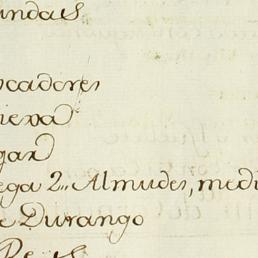 undas
ocadores
ieva
gar
ega 2.. Almudes, medi
e Durango